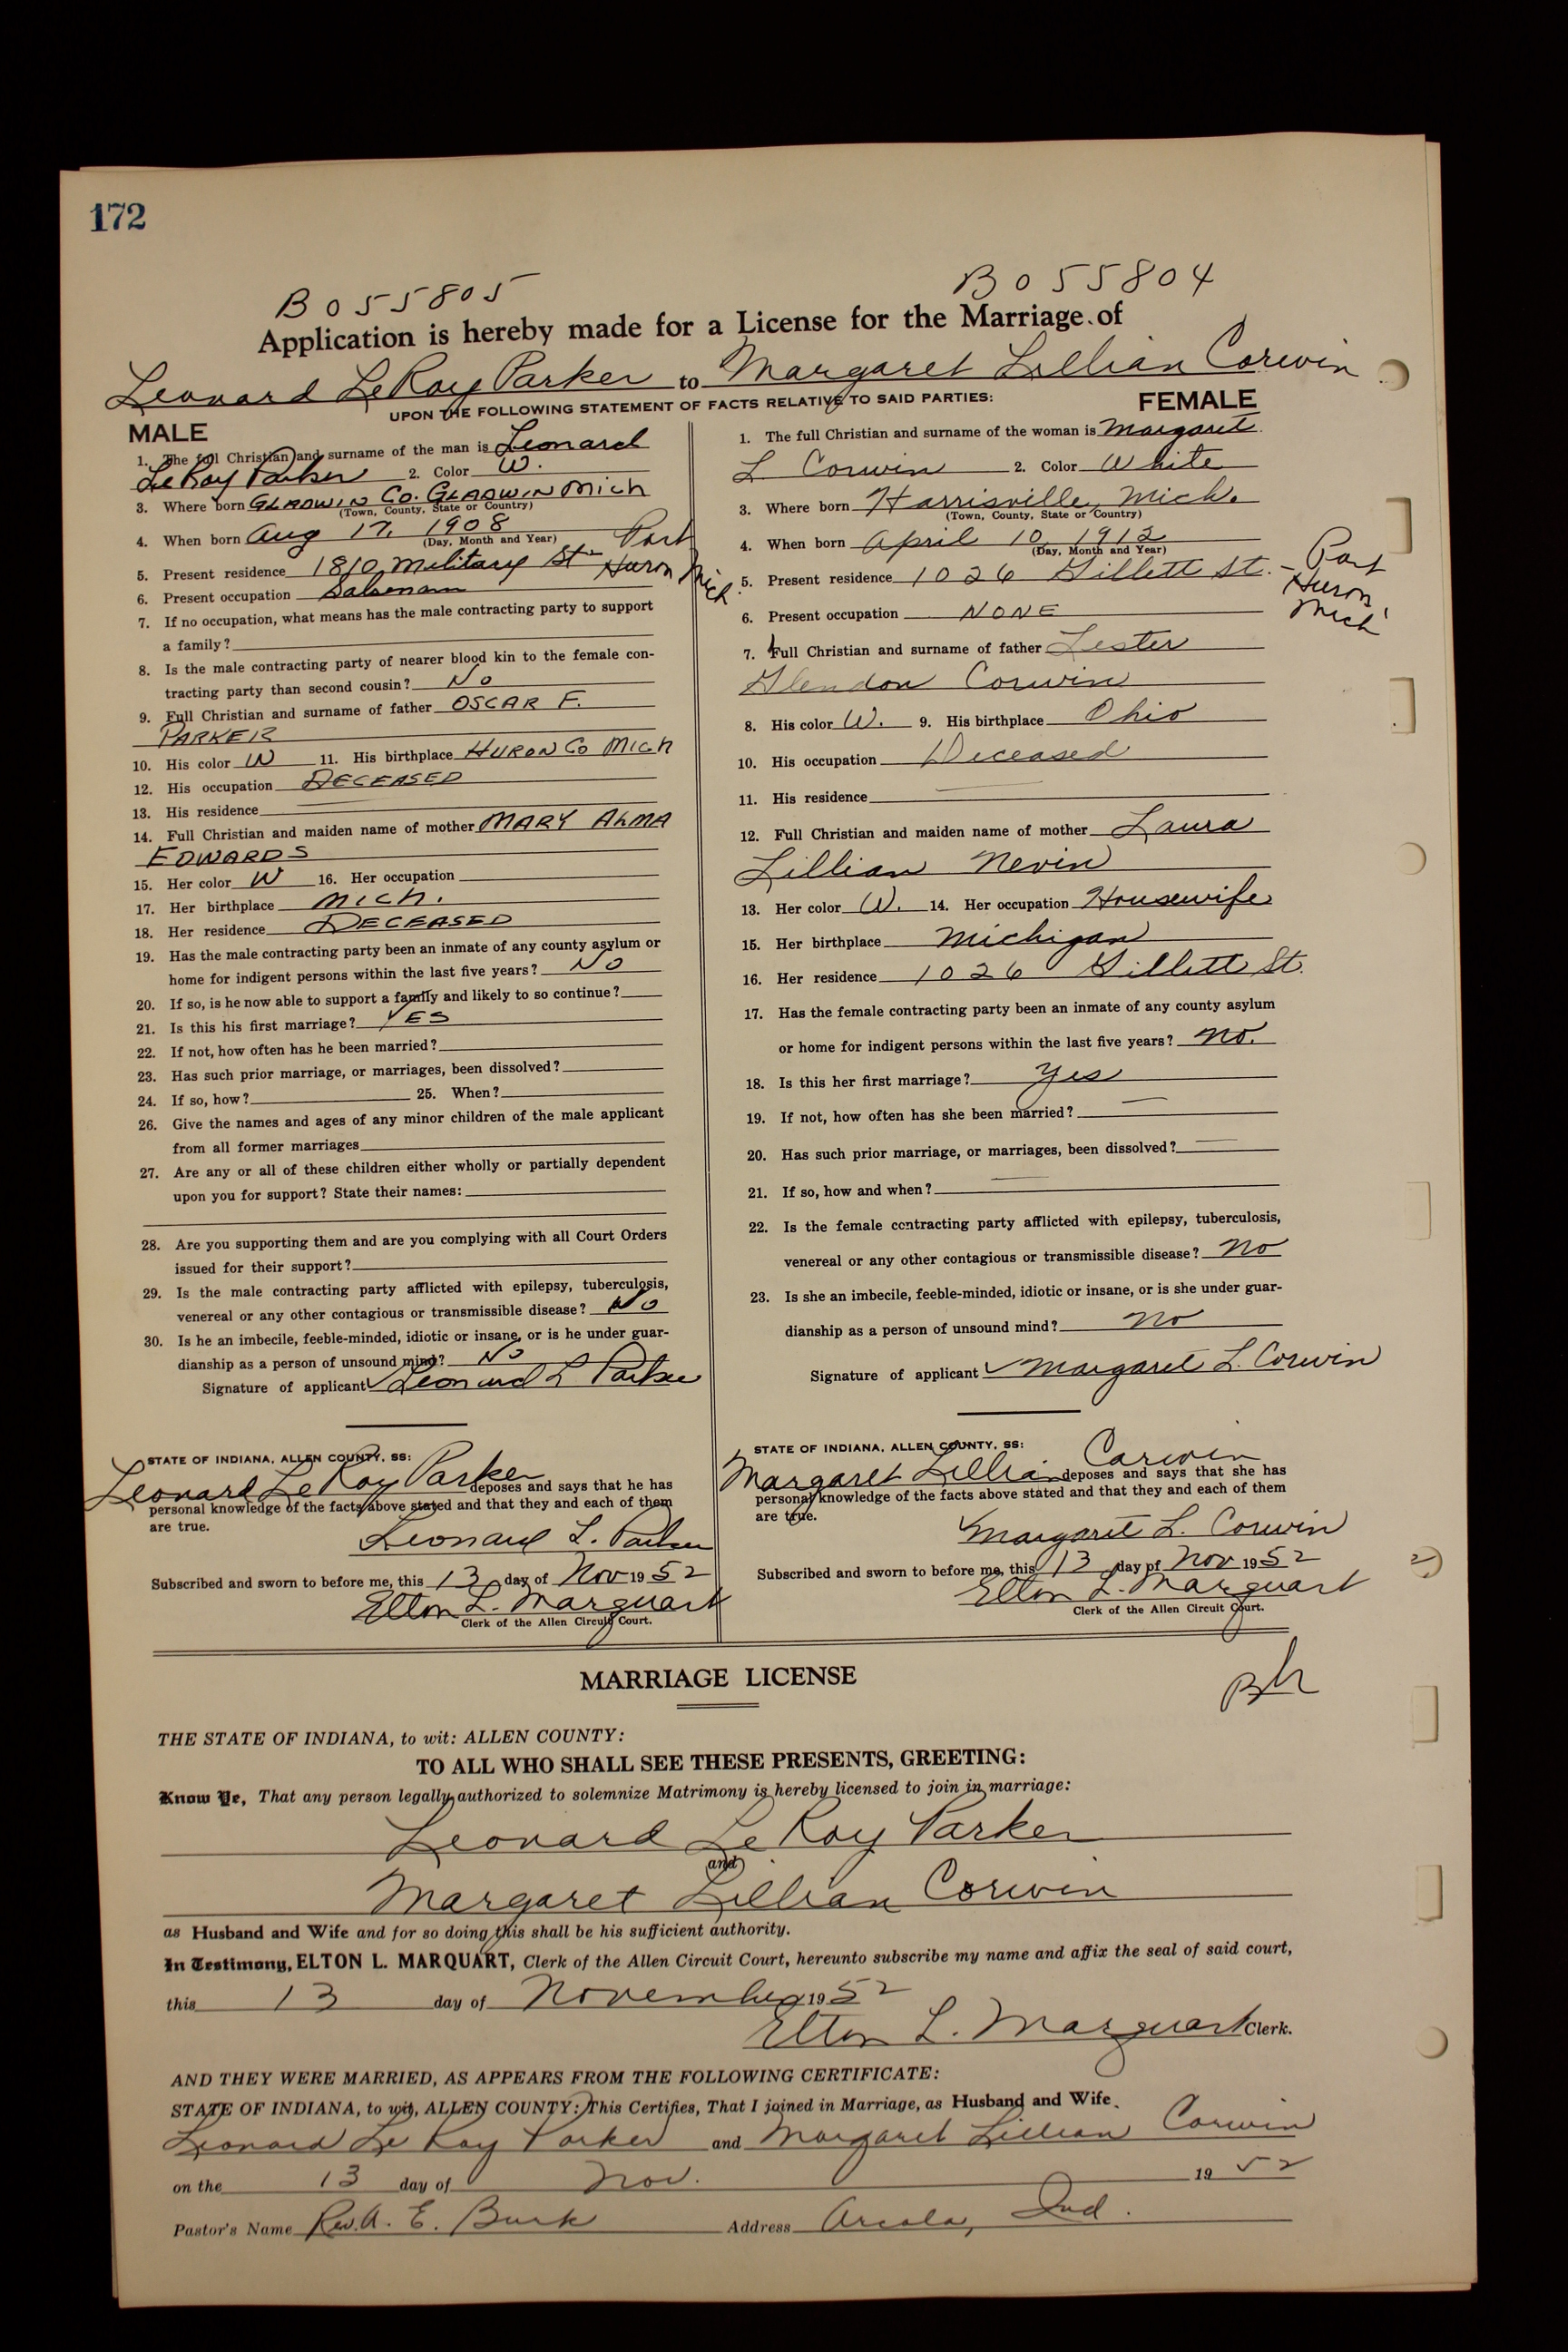 172
B055805
B055804
Application is hereby made for a License for the Marriage of
Leonard LeRoy Parker to Margaret Lillian Corwin
UPON THE FOLLOWING STATEMENT OF FACTS RELATIVE TO SAID PARTIES:
MALE
1. The full Christian and surname of the man is Leonard
LeRoy Parker 2. Color W.
3. Where born GLADWIN Co. GLADWIN Mich
(Town, County, State or Country)
4. When born Aug 17, 1908
(Day, Month and Year)
5. Present residence 1810 Military St Port Huron Mich.
6. Present occupation Salesman
7. If no occupation, what means has the male contracting party to support
a family?
8. Is the male contracting party of nearer blood kin to the female con-
tracting party than second cousin? No
9. Full Christian and surname of father OSCAR F.
PARKER
10. His color W 11. His birthplace HURON Co Mich
12. His occupation DECEASED
13. His residence
14. Full Christian and maiden name of mother MARY ALMA
EDWARDS
15. Her color W 16. Her occupation
17. Her birthplace Mich.
18. Her residence DECEASED
19. Has the male contracting party been an inmate of any county asylum or
home for indigent persons within the last five years? No
20. If so, is he now able to support a family and likely to so continue?
21. Is this his first marriage? YES
22. If not, how often has he been married?
23. Has such prior marriage, or marriages, been dissolved?
24. If so, how? 25. When?
26. Give the names and ages of any minor children of the male applicant
from all former marriages
27. Are any or all of these children either wholly or partially dependent
upon you for support? State their names:
28. Are you supporting them and are you complying with all Court Orders
issued for their support?
29. Is the male contracting party afflicted with epilepsy, tuberculosis,
venereal or any other contagious or transmissible disease? No
30. Is he an imbecile, feeble-minded, idiotic or insane, or is he under guar-
dianship as a person of unsound mind? No
Signature of applicant Leonard L Parker
STATE OF INDIANA, ALLEN COUNTY, SS:
Leonard LeRoy Parker deposes and says that he has
personal knowledge of the facts above stated and that they and each of them
are true.
Leonard L. Parker
Subscribed and sworn to before me, this 13 day of Nov 1952
Elton L. Marquart
Clerk of the Allen Circuit Court.
FEMALE
1. The full Christian and surname of the woman is Margaret
L Corwin 2. Color White
3. Where born Harrisville, Mich.
(Town, County, State or Country)
4. When born April 10, 1912
(Day, Month and Year)
5. Present residence 1026 Gillett St. - Port Huron, Mich
6. Present occupation NONE
7. Full Christian and surname of father Lester
Glendon Corwin
8. His color W. 9. His birthplace Ohio
10. His occupation Deceased
11. His residence
12. Full Christian and maiden name of mother Laura
Lillian Nevin
13. Her color W. 14. Her occupation Housewife
15. Her birthplace Michigan
16. Her residence 1026 Gillett St.
17. Has the female contracting party been an inmate of any county asylum
or home for indigent persons within the last five years? No.
18. Is this her first marriage? Yes
19. If not, how often has she been married?
20. Has such prior marriage, or marriages, been dissolved?
21. If so, how and when?
22. Is the female contracting party afflicted with epilepsy, tuberculosis,
venereal or any other contagious or transmissible disease? No
23. Is she an imbecile, feeble-minded, idiotic or insane, or is she under guar-
dianship as a person of unsound mind? No
Signature of applicant Margaret L. Corwin
STATE OF INDIANA, ALLEN COUNTY, SS:
Margaret Lillian Corwin deposes and says that she has
personal knowledge of the facts above stated and that they and each of them
are true.
Margaret L. Corwin
Subscribed and sworn to before me, this 13 day of Nov 1952
Elton L. Marquart
Clerk of the Allen Circuit Court.
MARRIAGE LICENSE
THE STATE OF INDIANA, to wit: ALLEN COUNTY:
TO ALL WHO SHALL SEE THESE PRESENTS, GREETING:
Know Ye, That any person legally authorized to solemnize Matrimony is hereby licensed to join in marriage:
Leonard Le Roy Parker
and
Margaret Lillian Corwin
as Husband and Wife and for so doing this shall be his sufficient authority.
In Testimony, ELTON L. MARQUART, Clerk of the Allen Circuit Court, hereunto subscribe my name and affix the seal of said court,
this 13 day of November 1952
Elton L. Marquart Clerk.
AND THEY WERE MARRIED, AS APPEARS FROM THE FOLLOWING CERTIFICATE:
STATE OF INDIANA, to wit, ALLEN COUNTY: This Certifies, That I joined in Marriage, as Husband and Wife
Leonard Le Roy Parker and Margaret Lillian Corwin
on the 13 day of Nov. 1952
Pastor's Name Rev. A. E. Burk Address Arcola, Ind.